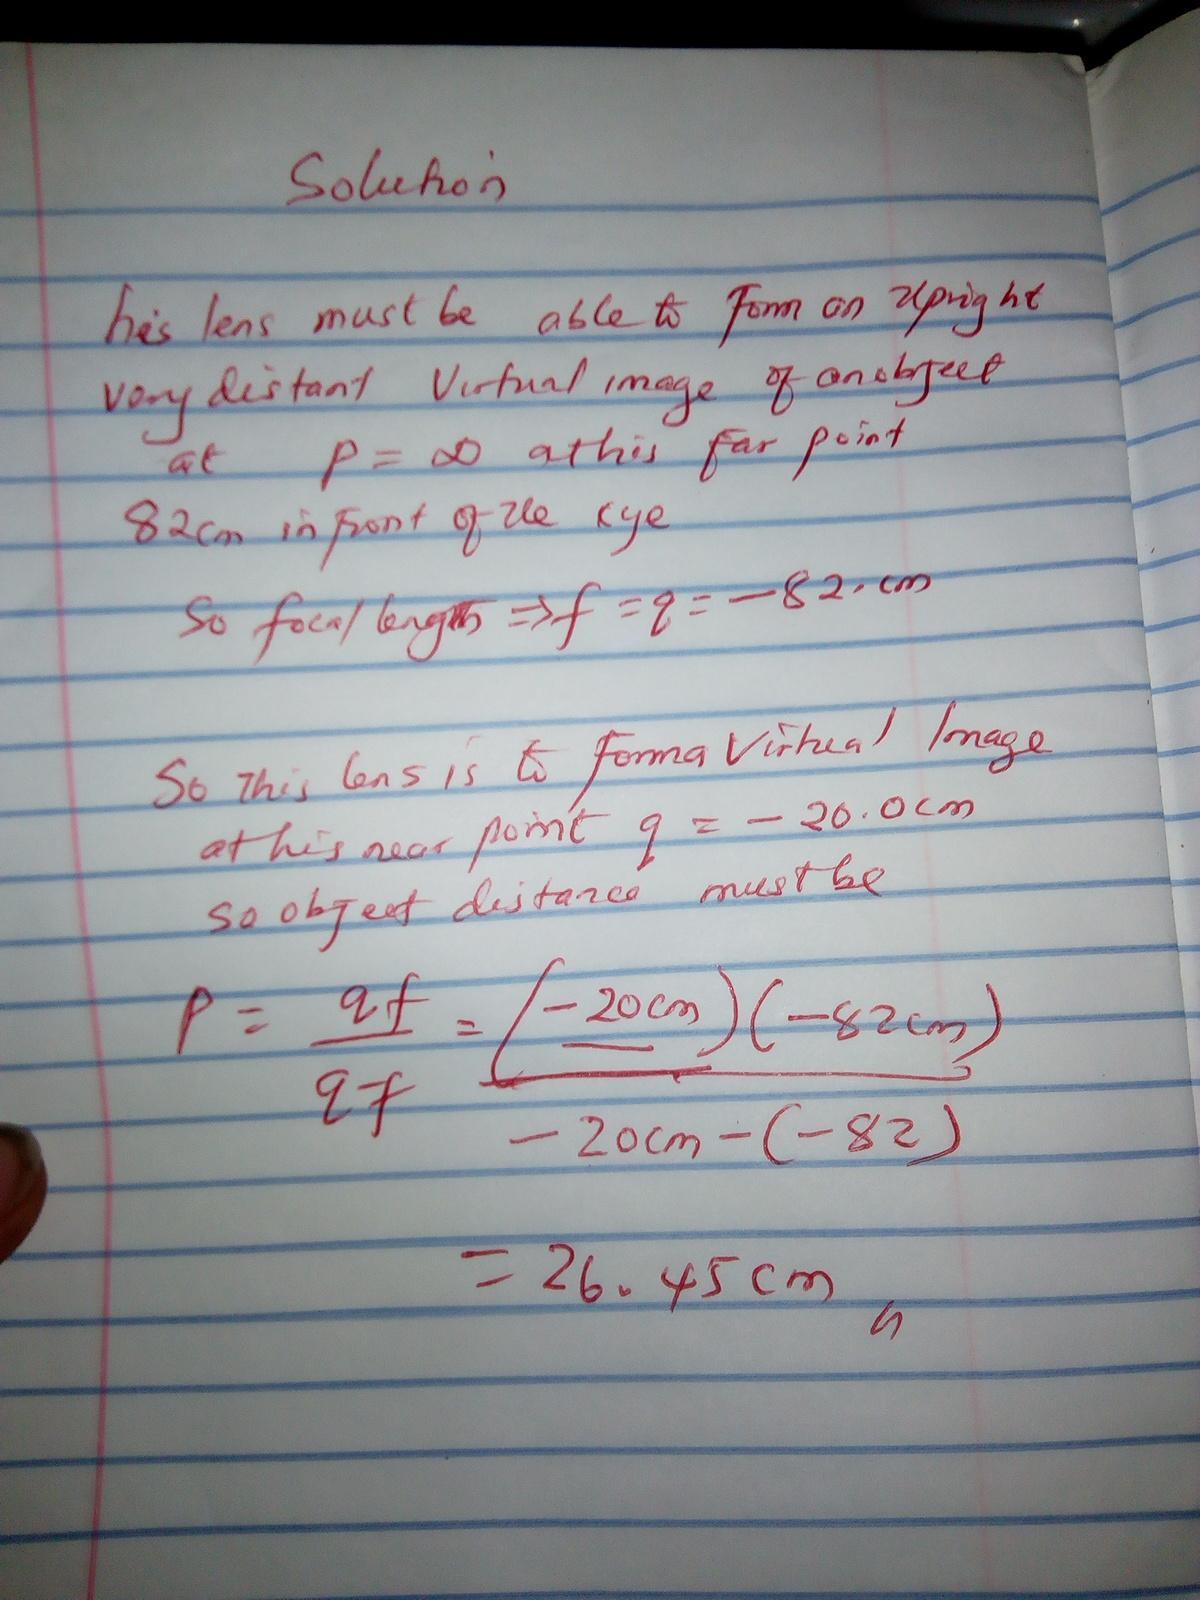 Solution
his lens must be able to Form an Upright
very distant Virtual image of an object
at P = ∞ at his far point
82cm in front of the eye
So focal length ⇒ f = q = -82.cm
So This lens is to form a Virtual Image
at his near point q = -20.0cm
so object distance must be
P = qf / qf = (-20cm)(-82cm) / -20cm-(-82)
= 26.45cm